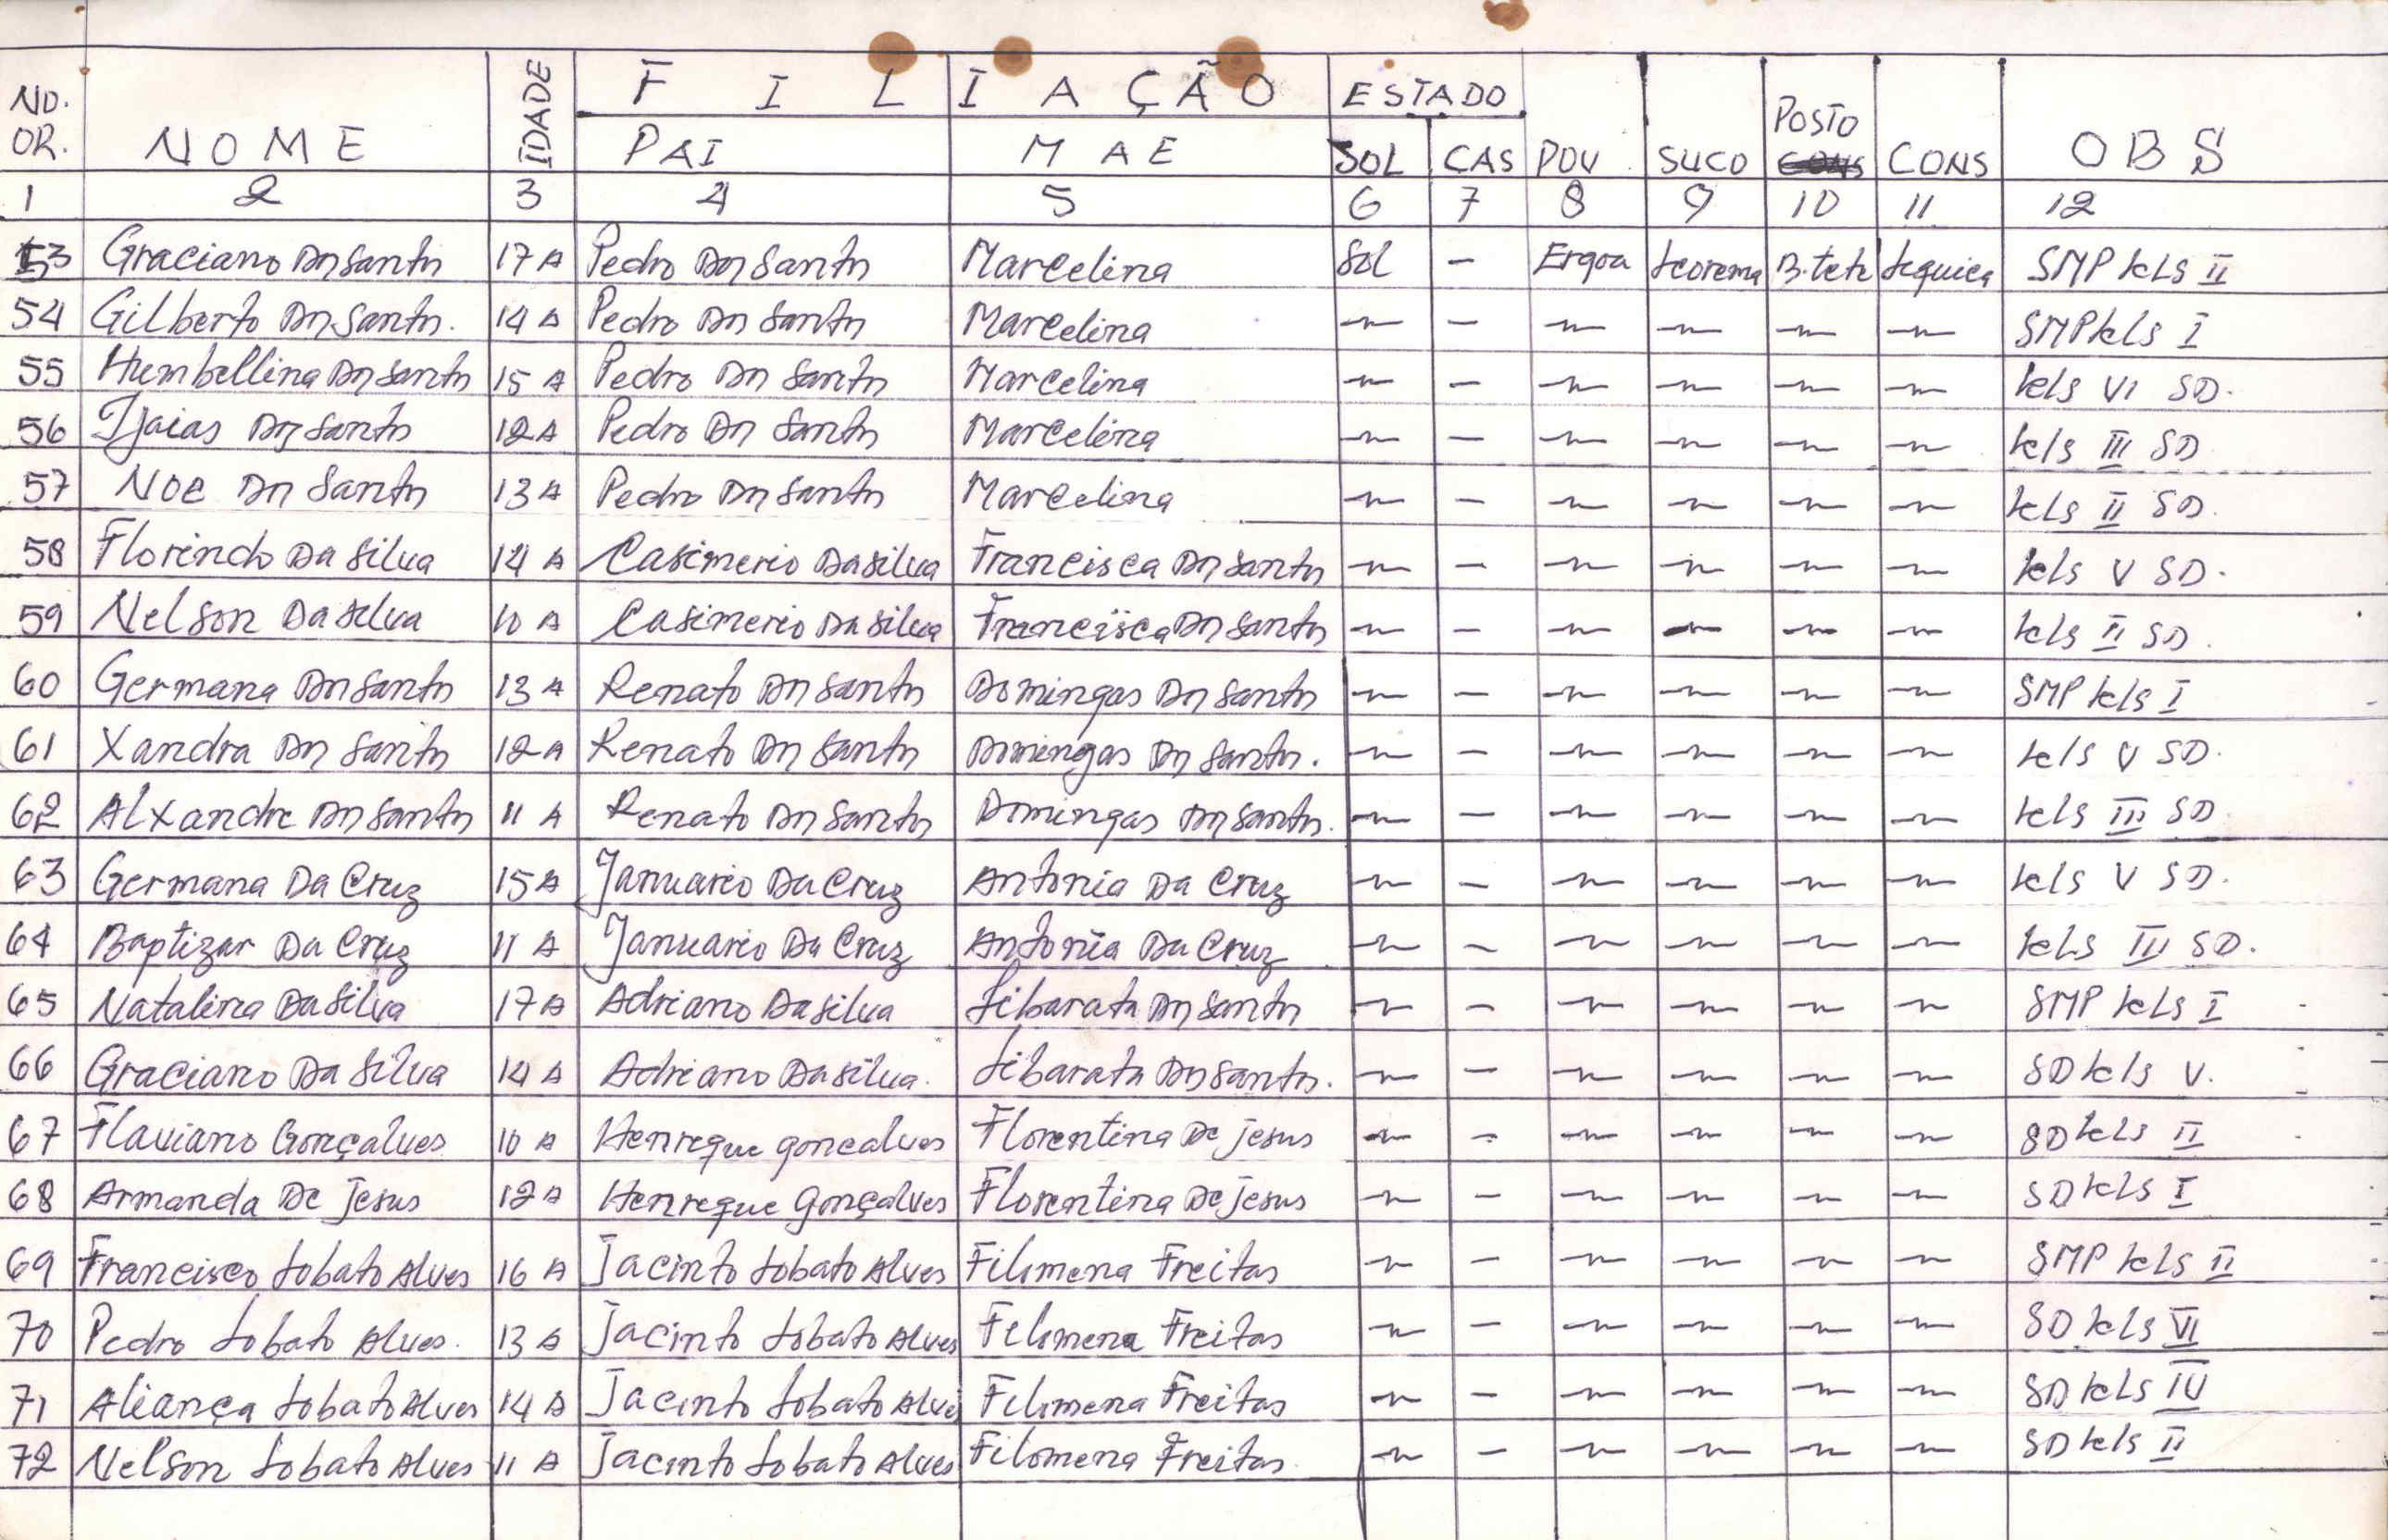 NO. OR. NOME IDADE FILIAÇÃO PAI MAE ESTADO SOL CAS POV SUCO POSTO CONS OBS
1 2 3 4 5 6 7 8 9 10 11 12
53 Graciano Dos Santos 17 A Pedro Dos Santos Marcelina Sol - Ergoa Leorema B. tete Lequiça SMP kls II
54 Gilberto Dos Santos. 14 A Pedro Dos Santos Marcelina — - — — — — SMP kls I
55 Humbellina Dos Santos 15 A Pedro Dos Santos Marcelina — - — — — — kls VI SD.
56 Izaias Dos Santos 12 A Pedro Dos Santos Marcelina — - — — — — kls III SD
57 Noe Dos Santos 13 A Pedro Dos Santos Marcelina — - — — — — kls II SD.
58 Florindo Da Silva 14 A Casimerio Da silva Francisca Dos Santos — - — — — — kls V SD.
59 Nelson Da silva 10 A Casimerio Da silva Francisca Dos Santos — - — — — — kls II SD.
60 Germana Dos Santos 13 A Renato Dos Santos Domingas Dos Santos — - — — — — SMP kls I
61 Xandra Dos Santos 12 A Renato Dos Santos Domingas Dos Santos. — - — — — — kls V SD.
62 Alxandre Dos Santos 11 A Renato Dos Santos Domingas Dos Santos. — - — — — — kls III SD.
63 Germana Da Cruz 15 A Januario Da Cruz Antonia Da Cruz — - — — — — kls V SD.
64 Baptizar Da Cruz 11 A Januario Da Cruz Antonia Da Cruz — - — — — — kls III SD.
65 Natalina Da Silva 17 A Adriano Da silva Libarata Dos Santos — - — — — — SMP kls I
66 Graciano Da Silva 14 A Adriano Da silva. Libarata Dos Santos. — - — — — — SD kls V.
67 Flaviano Gonçalves 10 A Henreque goncalves Florentina De jesus — - — — — — SD kls II
68 Armanda De jesus 12 A Henreque Gonçalves Florentina De jesus — - — — — — SD kls I
69 Francisco Lobato Alves 16 A Jacinto Lobato Alves Filomena Freitas — - — — — — SMP kls II
70 Pedro Lobato Alves. 13 A Jacinto Lobato Alves Filomena Freitas — - — — — — SD kls VI
71 Aliança Lobato Alves 14 A Jacinto Lobato Alve Filomena Freitas — - — — — — SD kls IV
72 Nelson Lobato Alves 11 A Jacinto Lobato Alves Filomena Freitas. — - — — — — SD kls II